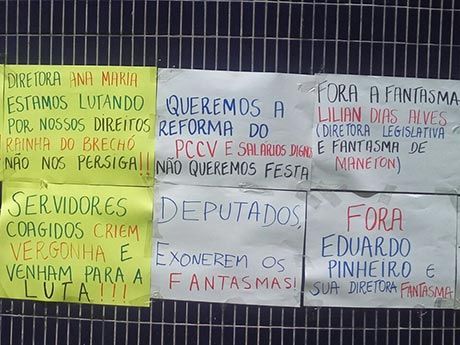 DIRETORA ANA MARIA
ESTAMOS LUTANDO
POR NOSSOS DIREITOS
RAINHA DO BRECHÓ
NÃO NOS PERSIGA!!!
QUEREMOS A
REFORMA DO
PCCV E SALÁRIOS DIGNOS
NÃO QUEREMOS FESTA
FORA A FANTASMA
LILIAN DIAS ALVES
(DIRETORA LEGISLATIVA
E FANTASMA DE
MANETON)
SERVIDORES
COAGIDOS CRIEM
VERGONHA E
VENHAM PARA A
LUTA!!!
DEPUTADOS,
EXONEREM OS
FANTASMAS!
FORA
EDUARDO
PINHEIRO E
SUA DIRETORA FANTASMA